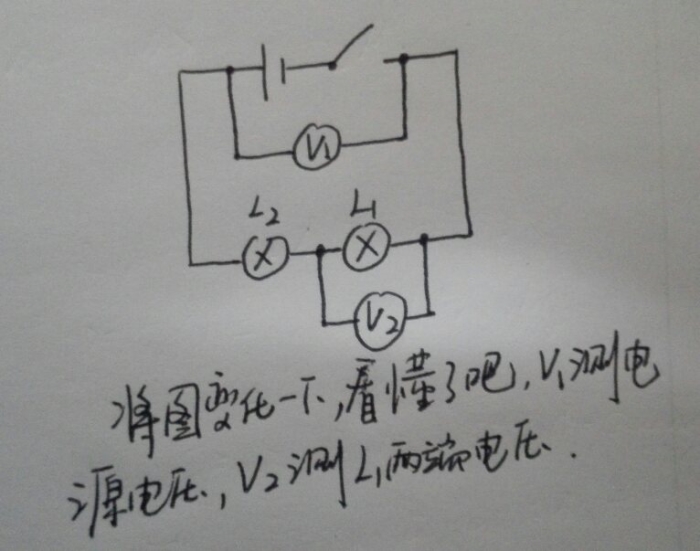 V1
L2 L1
V2
将图变化一下,看懂了吧,V1测电
源电压,V2测L1两端电压.